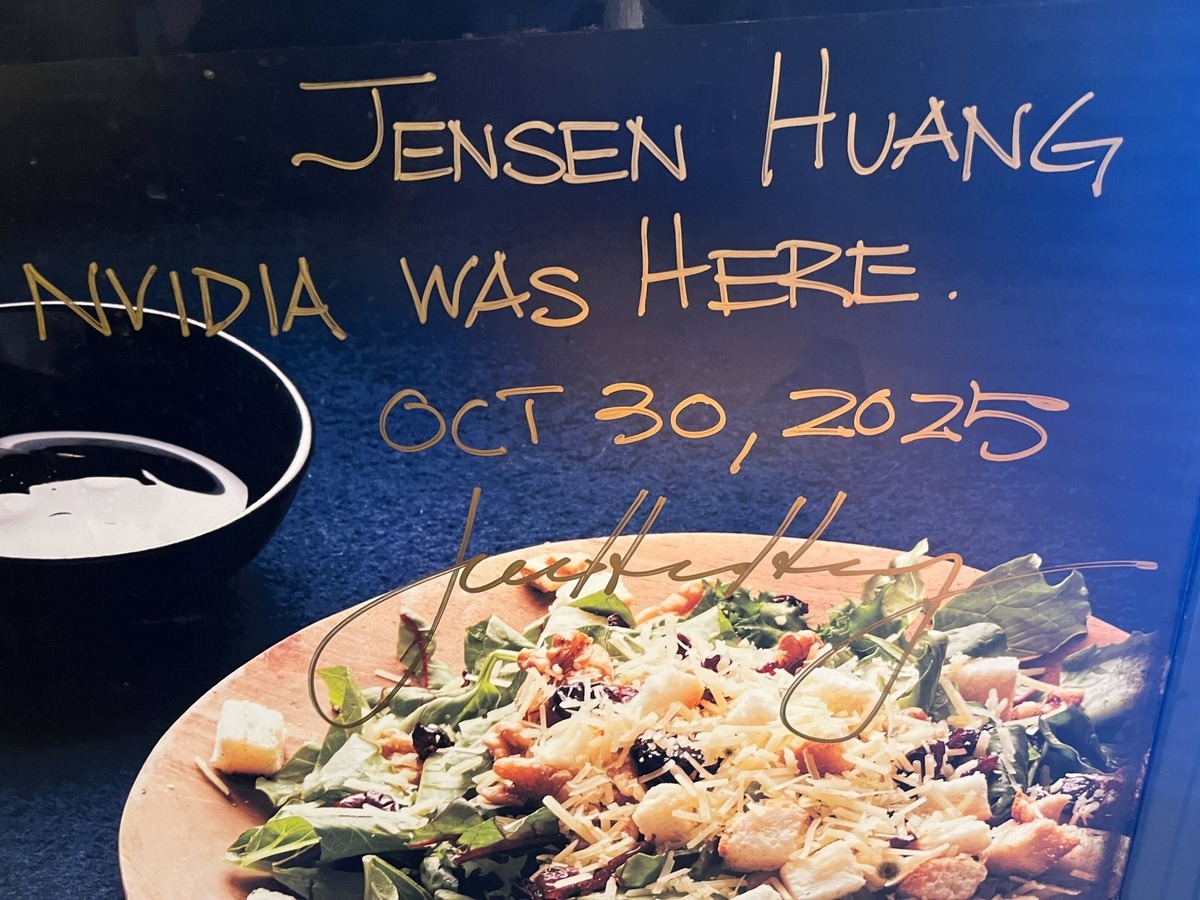 JENSEN HUANG
NVIDIA WAS HERE.
OCT 30, 2025